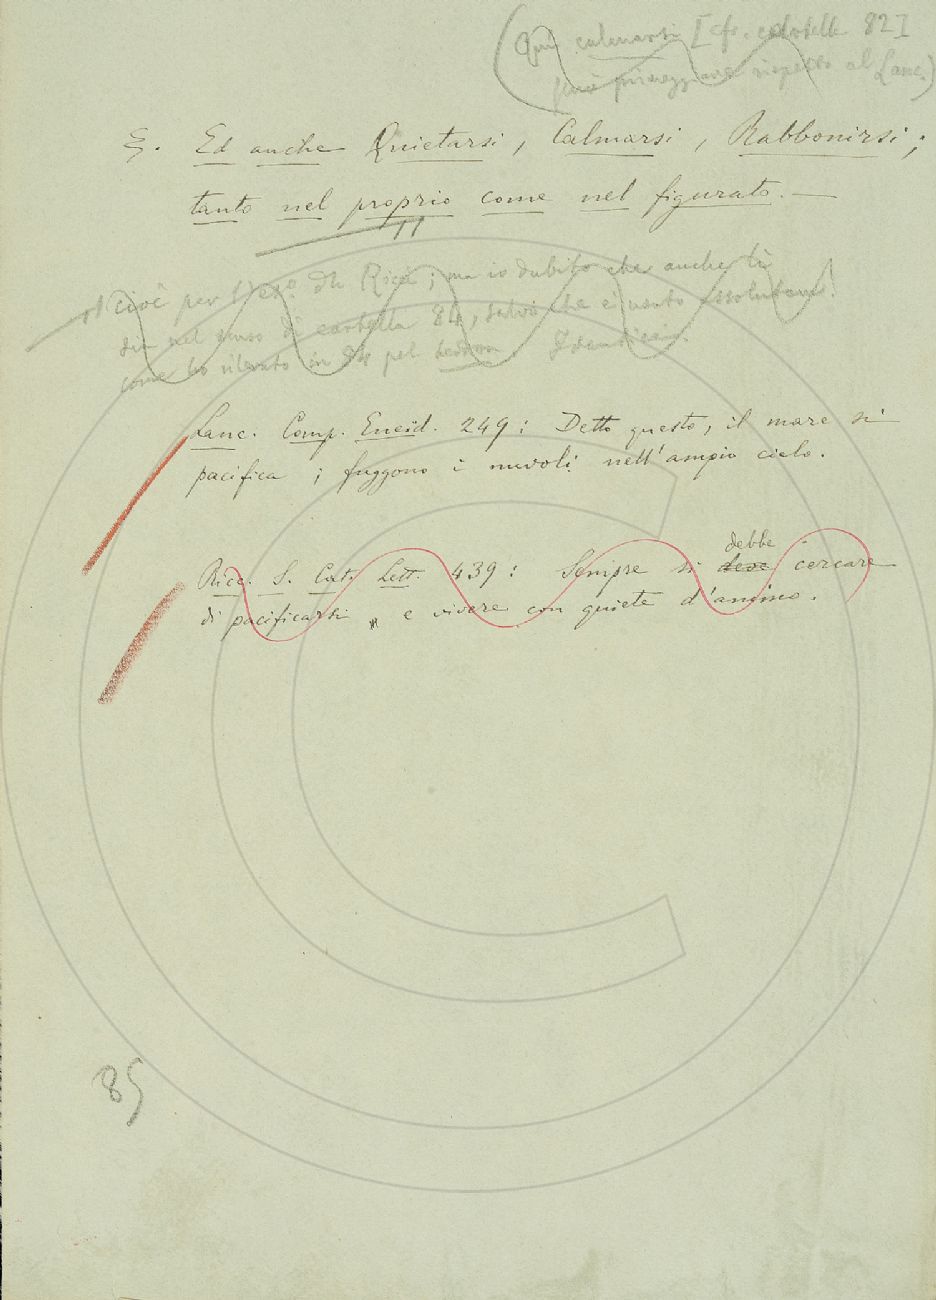 (Qui calmarsi [cfr. cartella 82]
può primeggiare rispetto al Lanc.)
§. Ed anche Quietarsi, Calmarsi, Rabbonirsi;
tanto nel proprio come nel figurato. —
cioè per l'es.º di Ricci; ma io dubito che anche lì
sia nel senso di cartella 84, salvo che è usato assolutam.
come ho rilevato in 84 pel
Lanc. Comp. Eneid. 249: Detto questo, il mare si
pacifica; fuggono i nuvoli nell'ampio cielo.
Ricc. S. Cat. Lett. 439: Sempre si deve debbe cercare
di pacificarsi, e vivere con quiete d'animo.
85